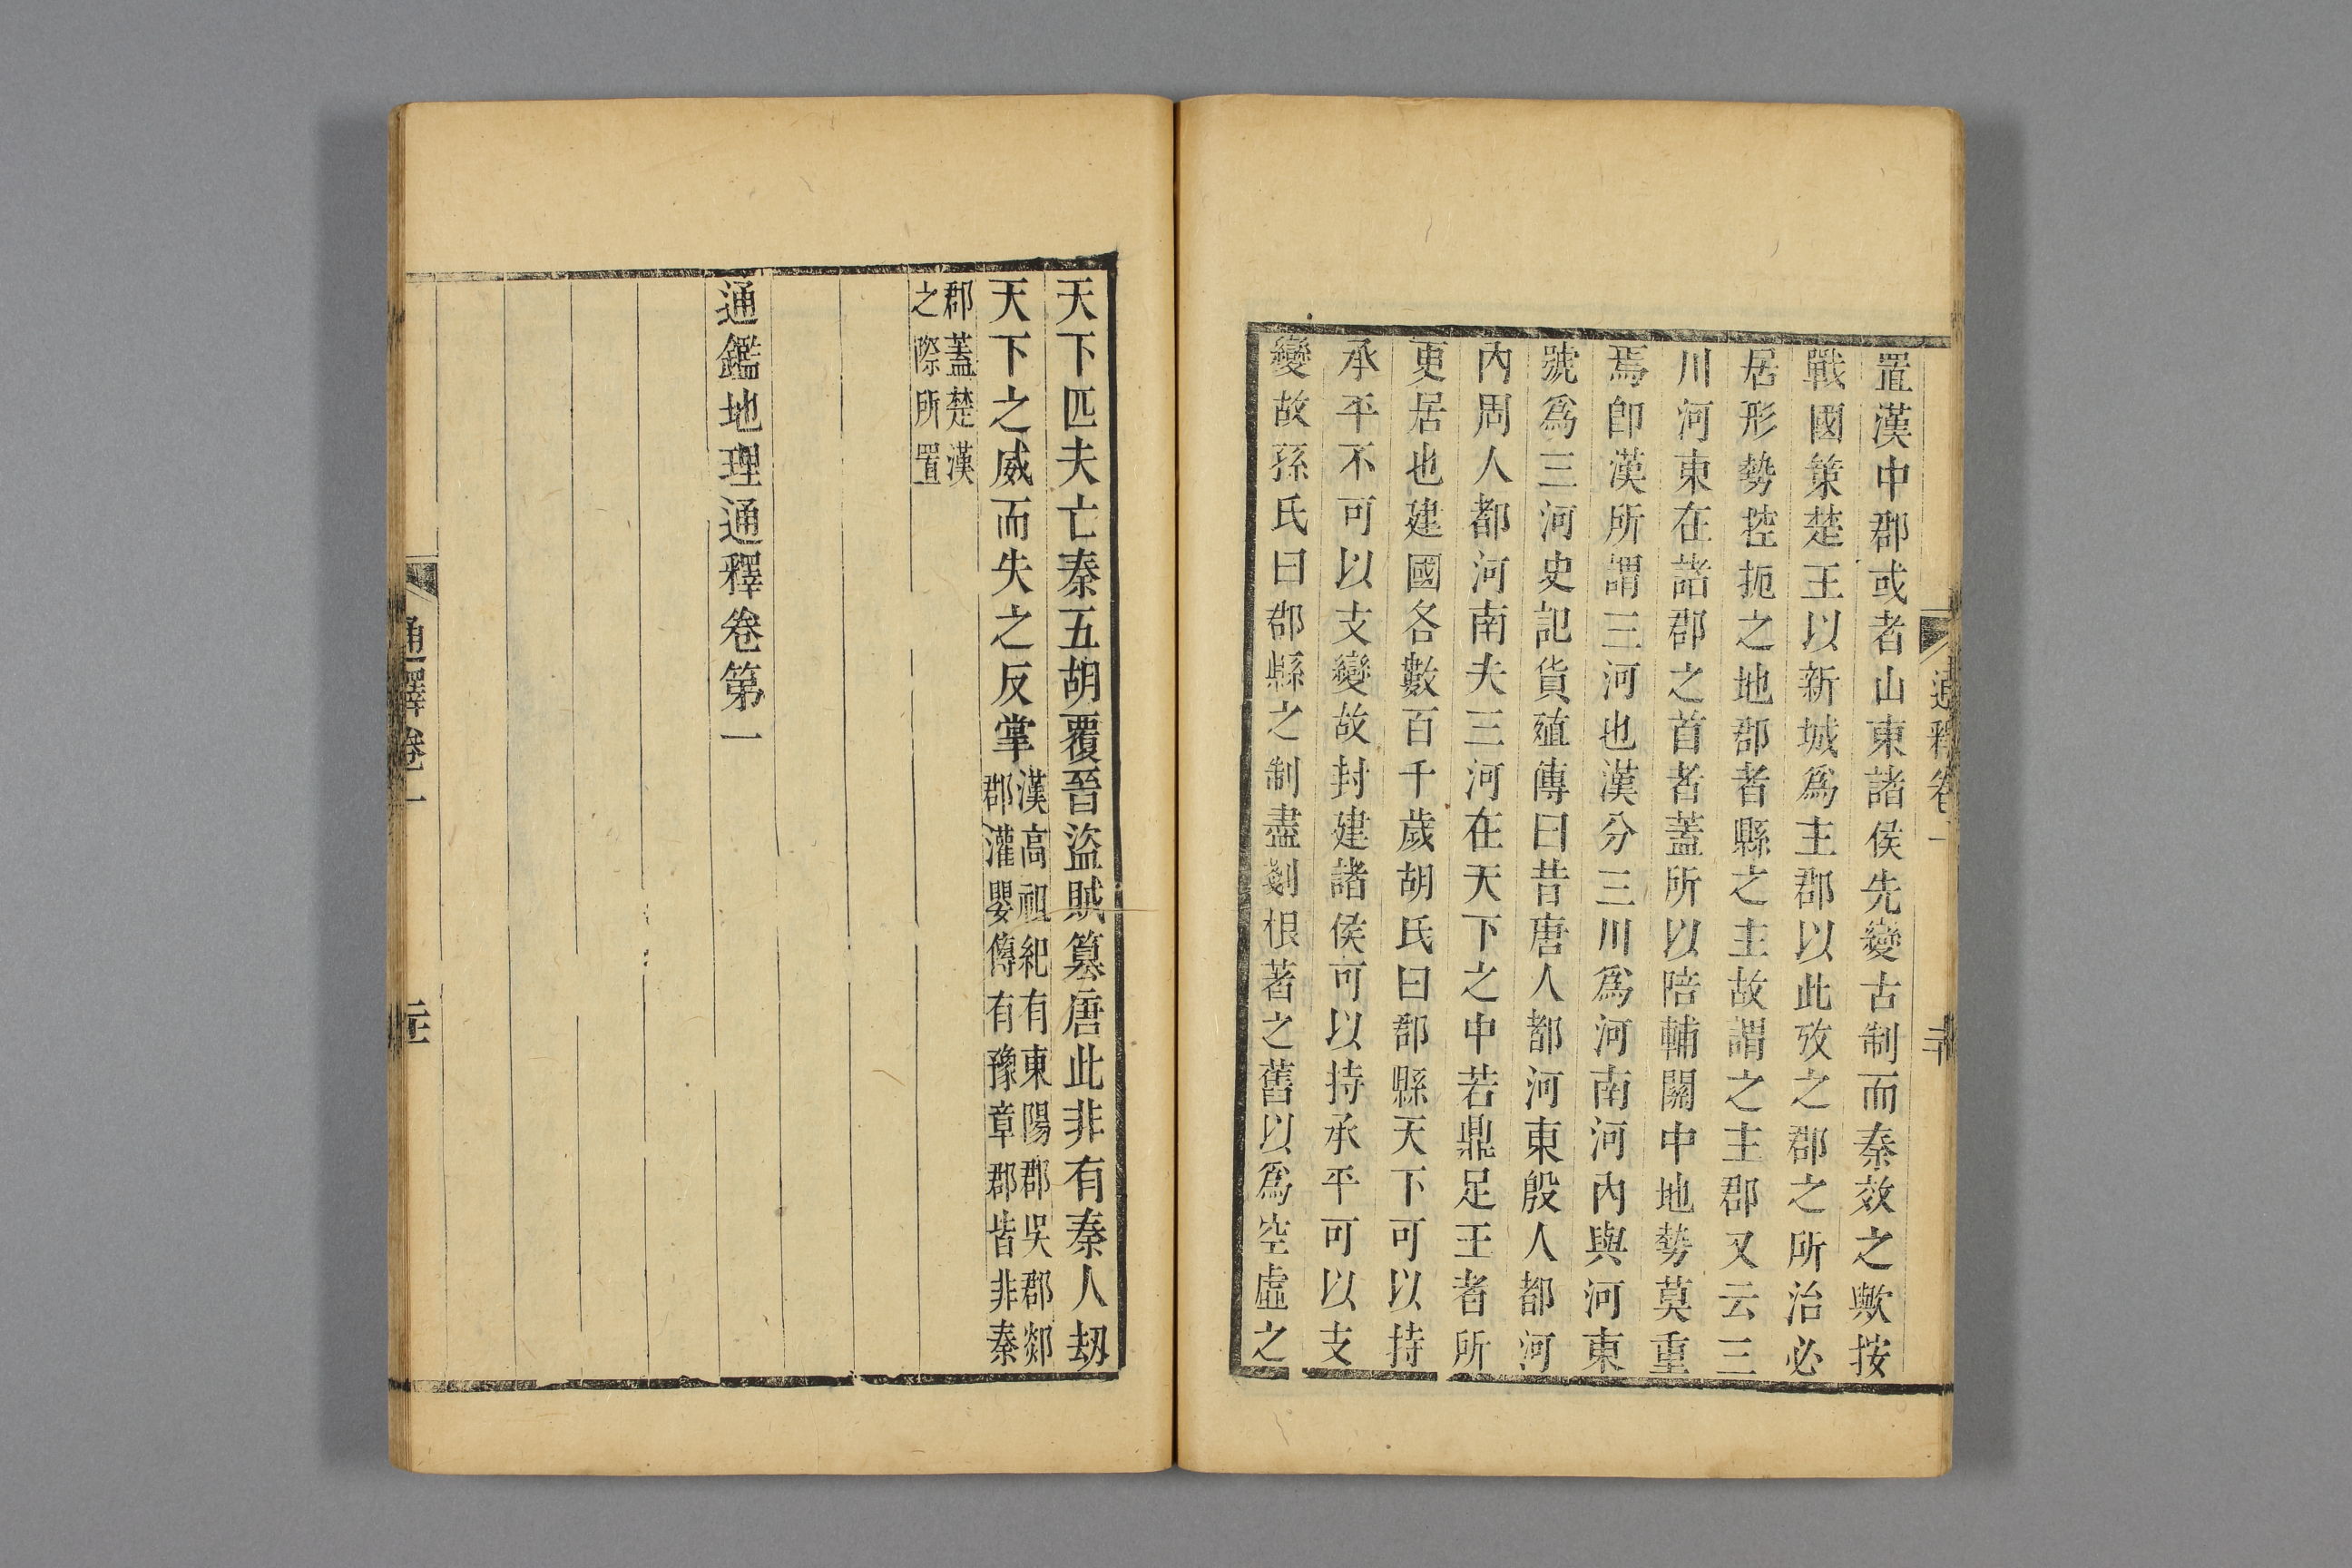 置漢中郡或者山東諸侯先變古制而秦效之歟按
戰國策楚王以新城爲主郡以此攷之郡之所治必
居形勢控扼之地郡者縣之主故謂之主郡又云三
川河東在諸郡之首者蓋所以陪輔關中地勢莫重
焉卽漢所謂三河也漢分三川爲河南河內與河東
號爲三河史記貨殖傳曰昔唐人都河東殷人都河
內周人都河南夫三河在天下之中若鼎足王者所
更居也建國各數百千歲胡氏曰郡縣天下可以持
承平不可以支變故封建諸侯可以持承平可以支
變故孫氏曰郡縣之制盡剗根著之舊以爲空虛之
天下匹夫亡秦五胡覆晉盜賊篡唐此非有秦人刼
天下之威而失之反掌
漢高祖紀有東陽郡鄣郡吳郡郯
郡灌嬰傳有豫章郡皆非秦
郡蓋楚漢
之際所置
通鑑地理通釋卷第一
通釋卷一